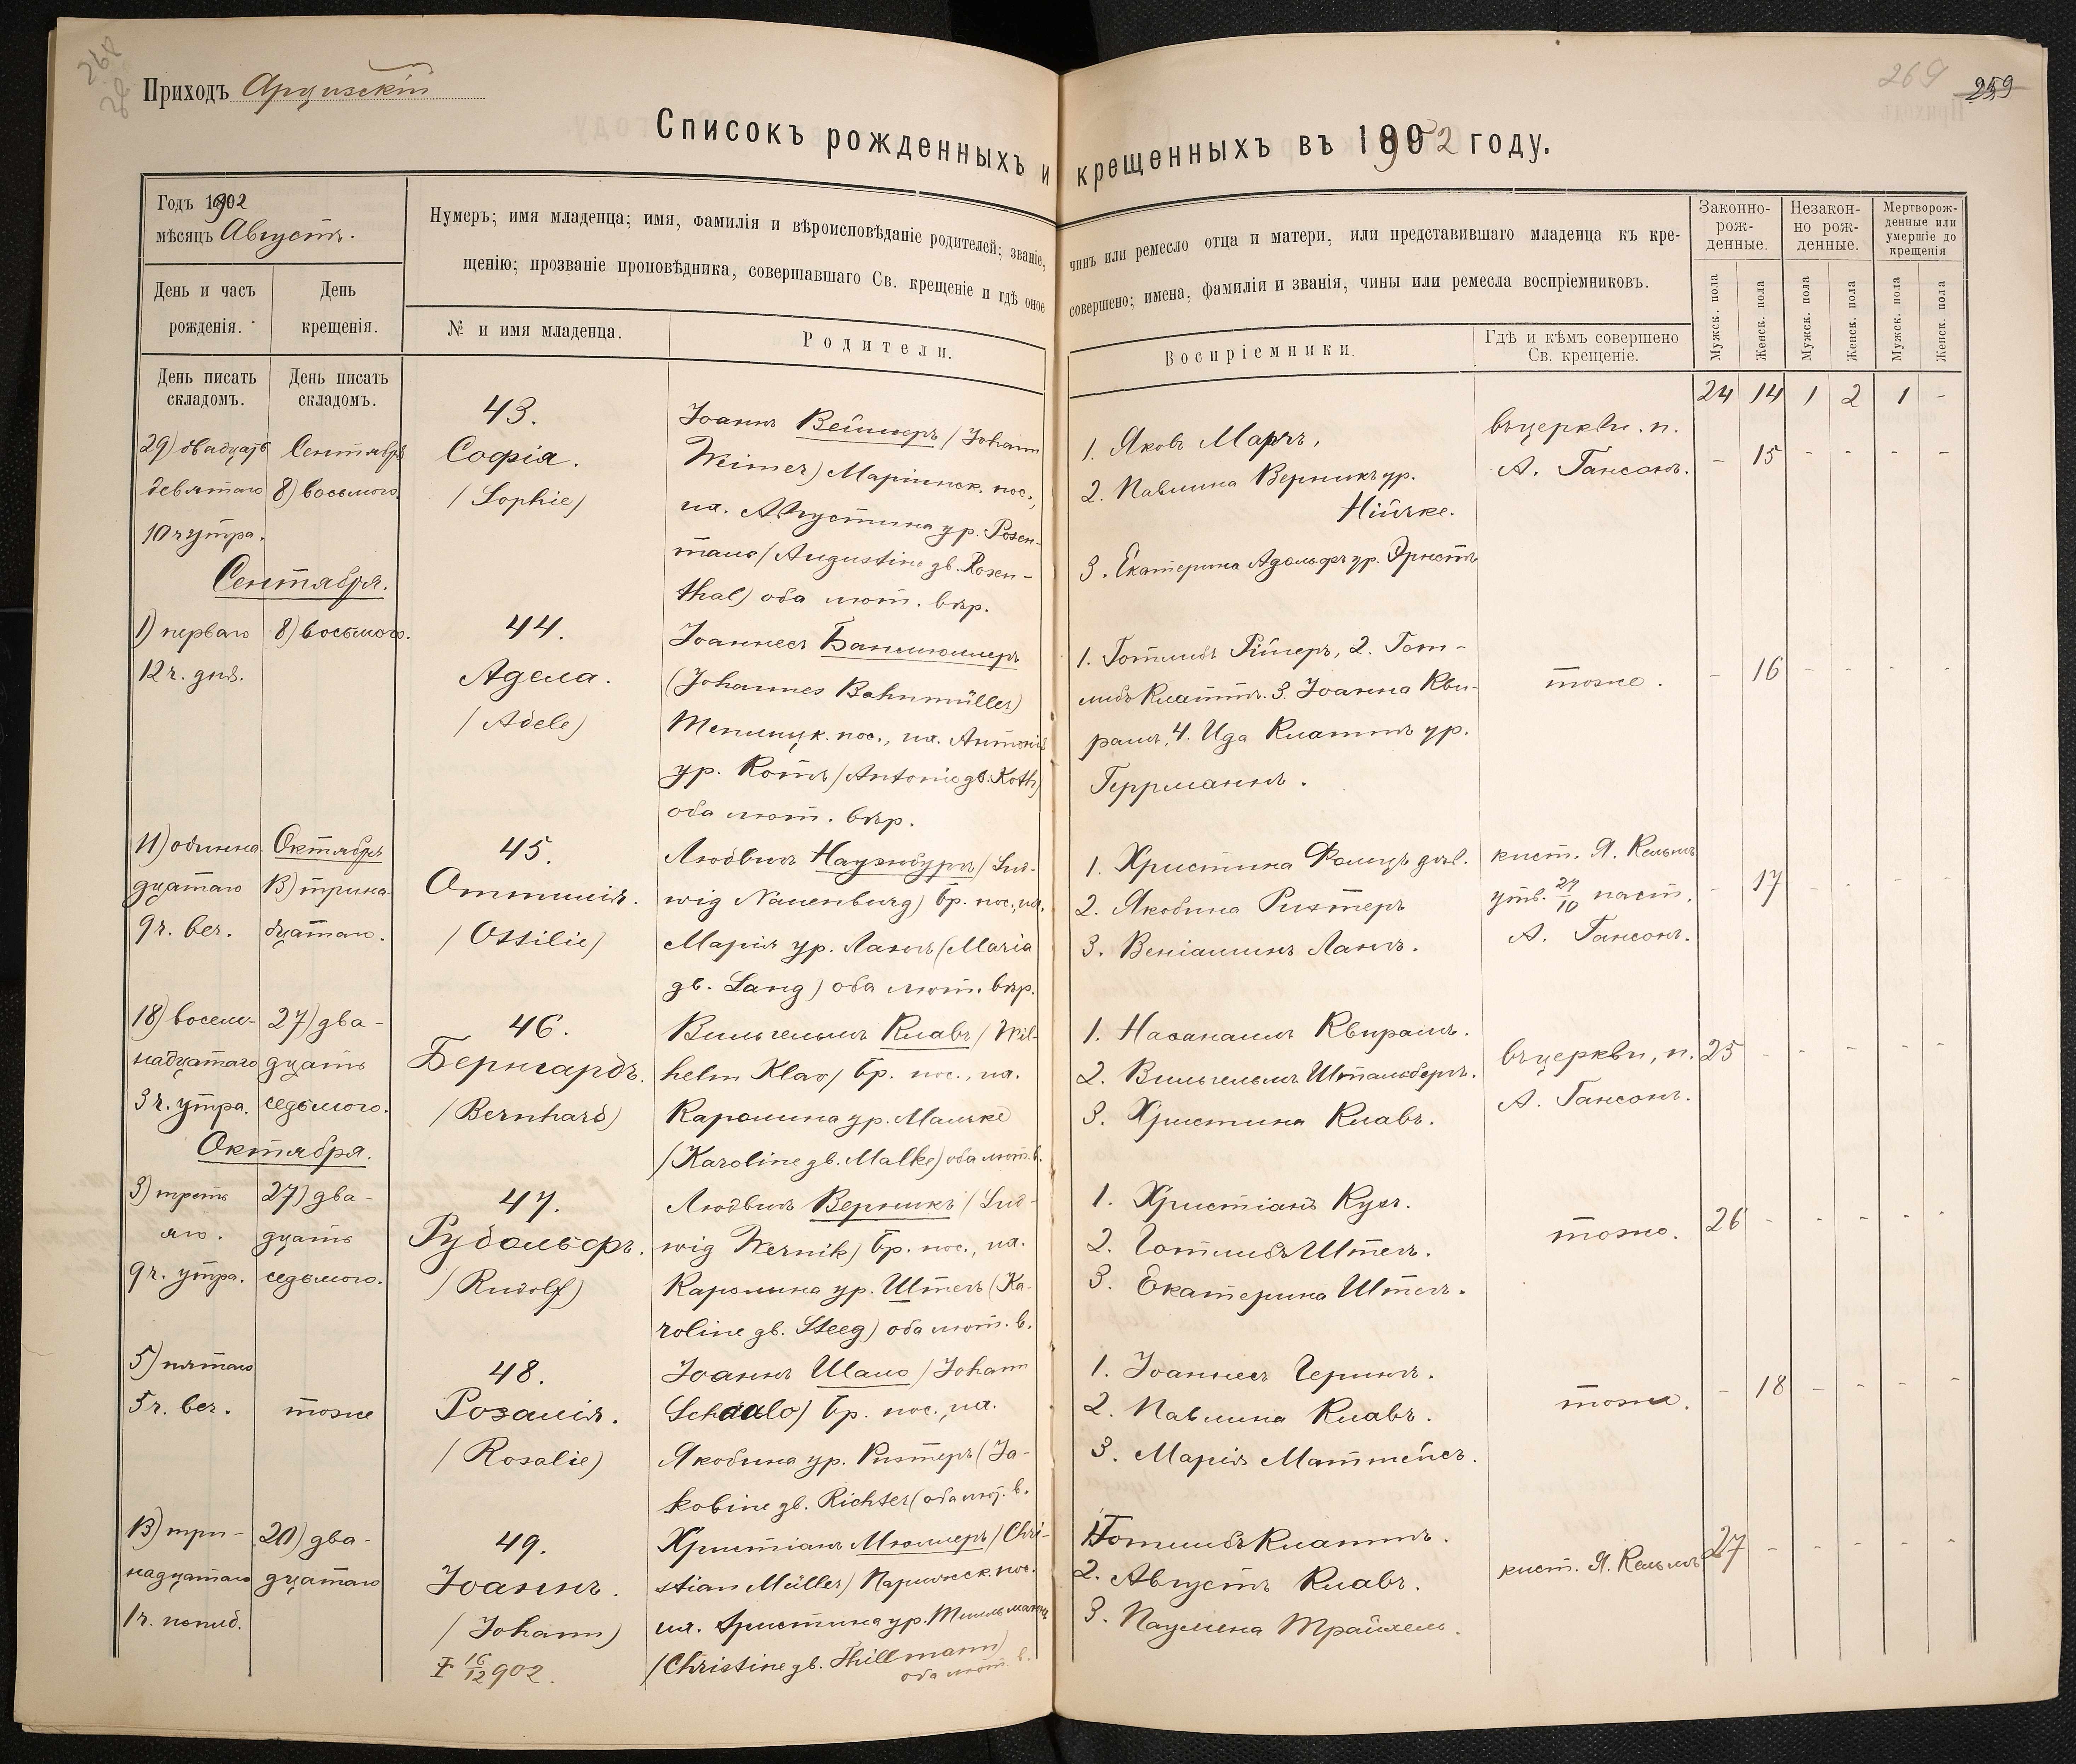 268
Приходъ Арцизскій
269
259
Списокъ рожденныхъ и крещенныхъ въ 1902 году.
Годъ 1902
мѣсяцъ Августъ.
Нумеръ; имя младенца; имя, фамилія и вѣроисповѣданіе родителей; званіе, чинъ или ремесло отца и матери, или представившаго младенца къ кре-
щенію; прозваніе проповѣдника, совершавшаго Св. крещеніе и гдѣ оное совершено; имена, фамиліи и званія, чины или ремесла воспріемниковъ.
Законно-
рож-
денные.
Незакон-
но рож-
денные.
Мертворож-
денные или
умершіе до
крещенія
День и часъ
рожденія.
День
крещенія.
№ и имя младенца.
Родители.
Воспріемники.
Гдѣ и кѣмъ совершено
Св. крещеніе.
Мужск. пола
Женск. пола
Мужск. пола
Женск. пола
Мужск. пола
Женск. пола
День писать
складомъ.
День писать
складомъ.
24 14 1 2 1 -
29) двадцать
девятаго
10 ч утра.
Сентября
8) восьмого.
43.
Софія.
(Sophie)
Іоаннъ Веймеръ (Johann
Weimer) Маріинск. пос.,
на. Августина ур. Розен-
таль (Augustine gb. Rosen-
thal) оба лют. вѣр.
1. Яковъ Марчъ.
2. Павлина Верникъ ур.
Ничке.
3. Екатерина Адольфъ ур. Эрнстъ
въ церкви. п.
А. Гансонъ.
- 15 - - - -
Сентября.
1) перваго
12 ч. дня.
8) восьмого.
44.
Адела.
(Adele)
Іоаннесъ Банмюллеръ
(Johannes Bahnmüller)
Теплицк. пос., на. Антонія
ур. Котъ (Antonie gb. Koth)
оба лют. вѣр.
1. Готлибъ Гіигеръ, 2. Гот-
либъ Клаттъ. 3. Іоанна Кви-
рамъ, 4. Ида Клаттъ ур.
Геррманнъ.
тоже.
- 16 - - - -
11) одинна-
дцатаго
9 ч. веч.
Октября
13) трина-
дцатаго.
45.
Оттилія.
(Ottilie)
Людвигъ Науэнбургъ (Lud-
wig Nauenburg) бр. пос., на.
Марія ур. Лангъ (Maria
gb. Lang) оба лют. вѣр.
1. Христина Фольцъ дѣв.
2. Якобина Рихтеръ
3. Веніаминъ Лангъ.
кист. Я. Кельмъ
утв. 27/10 паст.
А. Гансонъ.
- 17 - - - -
18) восем-
надцатаго
3 ч. утра.
27) два-
дцать
седьмого.
46.
Бернгардъ.
(Bernhard)
Вильгельмъ Клавъ (Wil-
helm Klav) бр. пос., на.
Каролина ур. Мальке
(Karoline gb. Malke) оба лют. в.
1. Насанаилъ Квирамъ.
2. Вильгельмъ Штальбергъ.
3. Христина Клавъ.
въ церкви, п.
А. Гансонъ.
25 - - - - -
Октября.
3) треть-
яго.
9 ч. утра.
27) два-
дцать
седьмого.
47.
Рудольфъ.
(Rudolf)
Людвигъ Верникъ (Lud-
wig Wernik) бр. пос., на.
Каролина ур. Штегъ (Ka-
roline gb. Steeg) оба лют. в.
1. Христіанъ Кухъ.
2. Готлибъ Штегъ.
3. Екатерина Штегъ.
тоже.
26 - - - - -
5) пятаго
5 ч. веч.
тоже
48.
Розалія.
(Rosalie)
Іоаннъ Шало (Johann
Schaalo) бр. пос., на.
Якобина ур. Рихтеръ (Ja-
kobine gb. Richter) оба лют. в.
1. Іоаннесъ Герингъ.
2. Павлина Клавъ.
3. Марія Маттейсъ.
тоже.
- 18 - - - -
13) три-
надцатаго
1 ч. попол.
20) два-
дцатаго
49.
Іоаннъ.
(Johann)
† 16/12 902.
Христіанъ Мюллеръ (Chri-
stian Müller) Парижск. пос.
на. Христина ур. Тильманнъ
(Christine gb. Thillmann)
оба лют. в.
1. Готлибъ Клаттъ.
2. Августъ Клавъ.
3. Паулина Трайхель.
кист. Я. Кельмъ
27 - - - - -